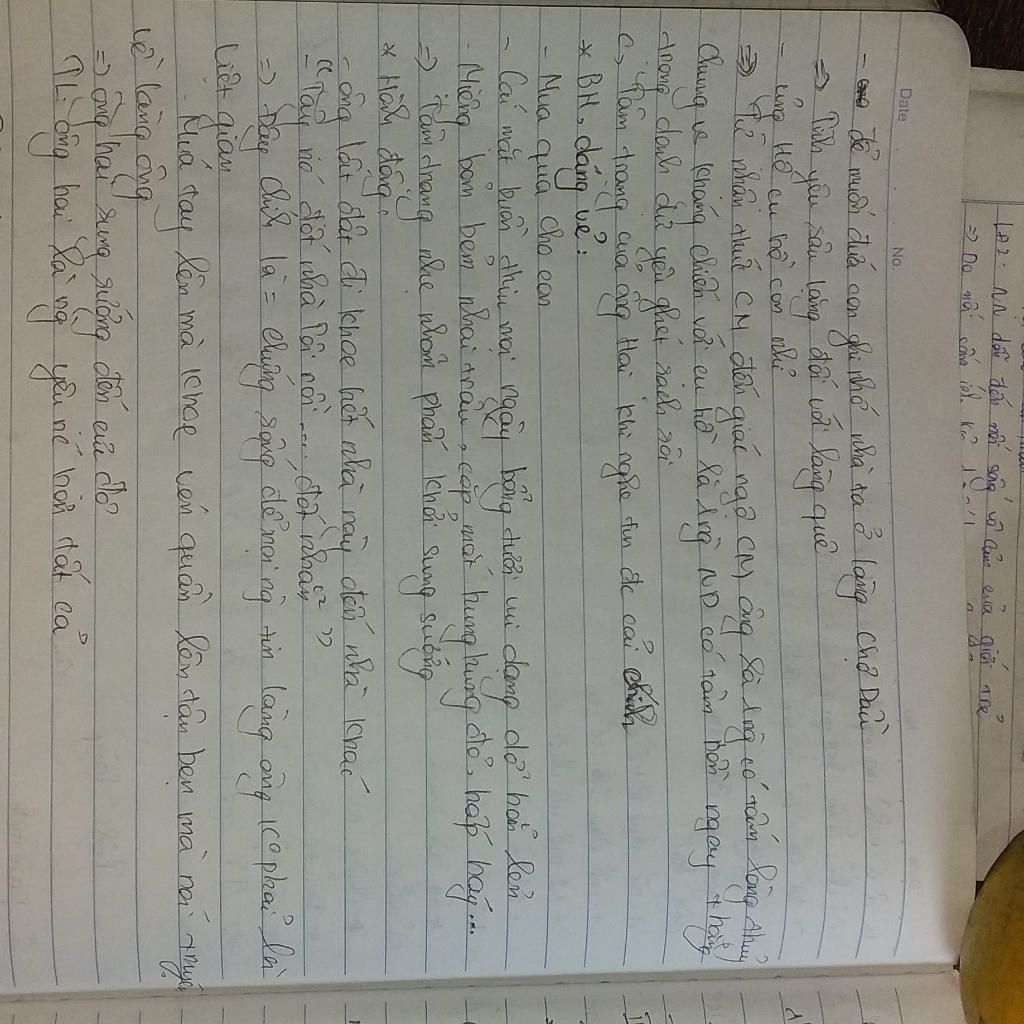 Date
No.
- để muốn đứa con ghi nhớ nhà ta ở làng chợ Dầu
=> Tình yêu sâu lặng đối với làng quê
- ủng Hồ cụ hồ con nhỉ
=> Từ nhân thức CM đến giác ngộ CM ông là lng có tấm lòng thuỷ
chung vs kháng chiến với cụ hồ là lng ND có tâm hồn ngay thẳng
trọng danh dự yêu ghét rách ròi
c, Tâm trạng của ông Hai khi nghe tin đc cải chính
* BH, dáng vẻ:
- Mua quà cho con
- Cái mặt buồn thỉu mọi ngày bỗng tươi vui dạng dỡ hẳn lên
- Miệng bỏm bẻm nhai trầu, cặp mắt hung hung đỏ, hấp háy...
=> Tâm trạng như nhởm phấn khởi sung sướng
* Hành động:
- ông lật đật đi khoe hết nhà này đến nhà khác
- "Tây nó đốt nhà tôi rồi .... đốt nhẵn"
=> Đây chính là = chứng sống để mọi ng tin làng ông ko phải là
Việt gian
- Múa tay lên mà khoe vén quần lên tận bẹn mà nói
về làng ông
=> ông hai sung sướng đến cực độ
TL: ông hai là ng yêu nc hơn tất cả